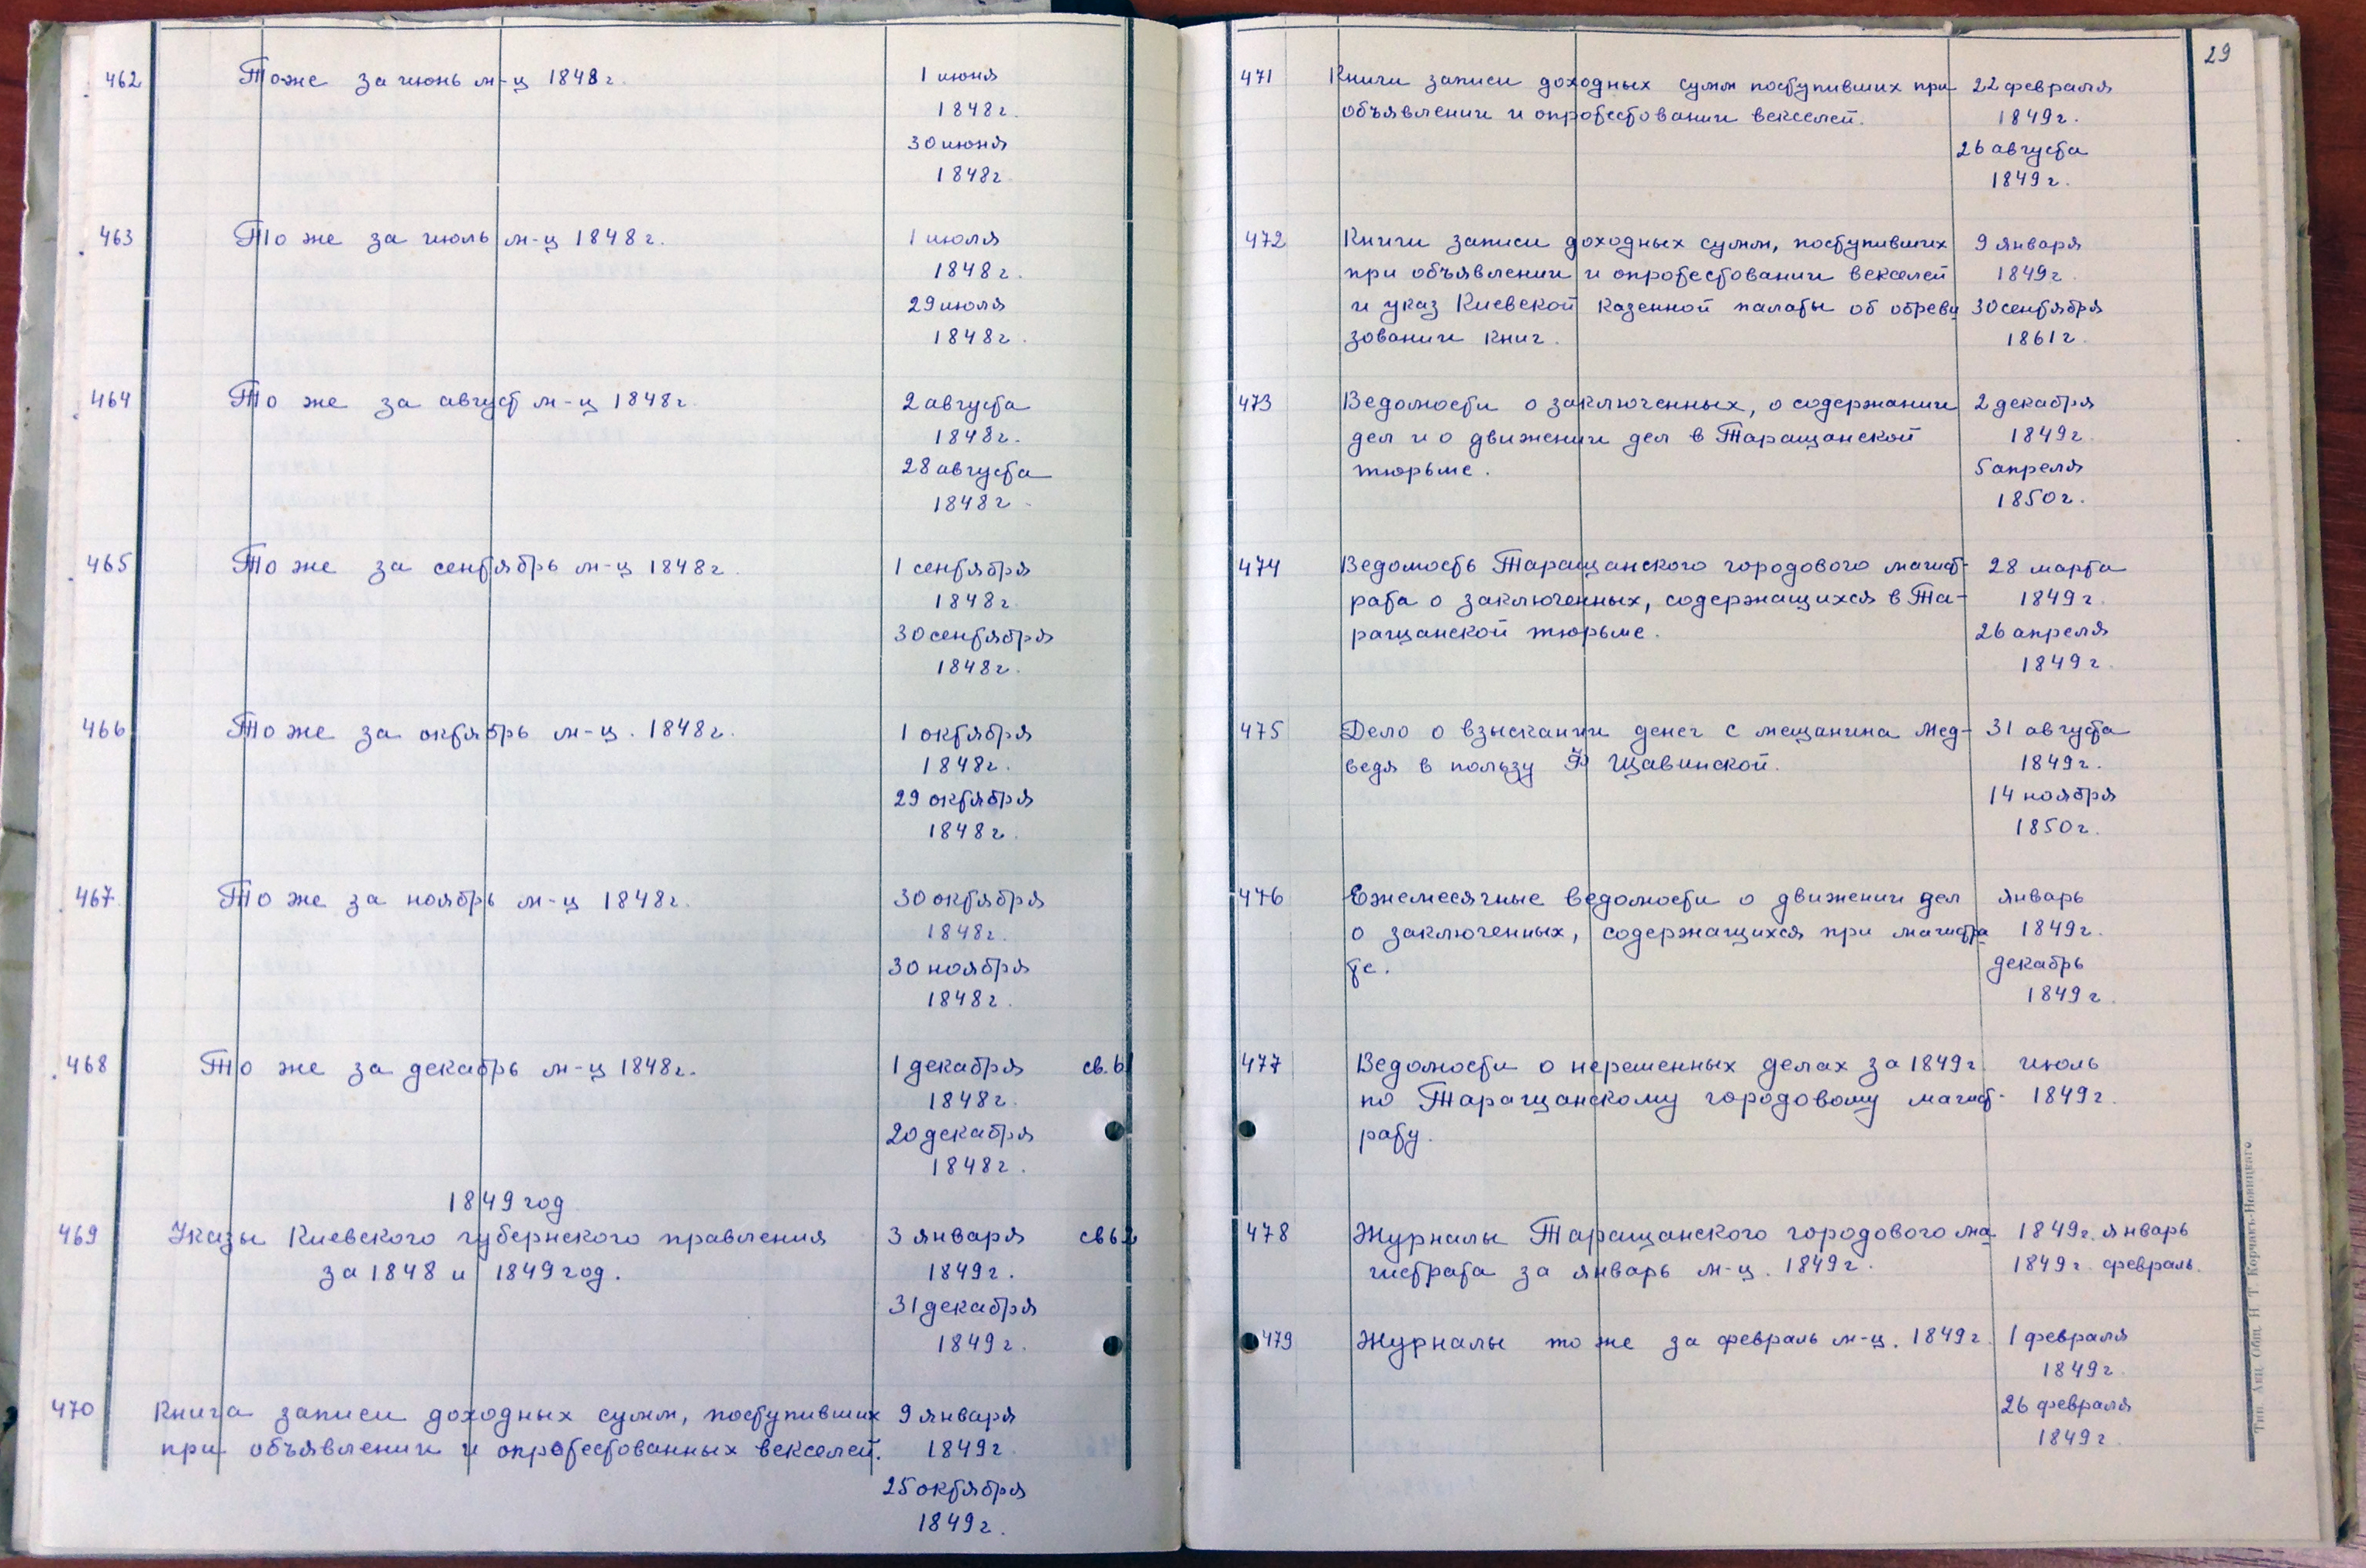 462 Тоже за июнь м-ц 1848 г. 1 июня
1848 г.
30 июня
1848 г.
463 То же за июль м-ц 1848 г. 1 июля
1848 г.
29 июля
1848 г.
464 То же за август м-ц 1848 г. 2 августа
1848 г.
28 августа
1848 г.
465 То же за сентябрь м-ц 1848 г. 1 сентября
1848 г.
30 сентября
1848 г.
466 То же за октябрь м-ц. 1848 г. 1 октября
1848 г.
29 октября
1848 г.
467 То же за ноябрь м-ц 1848 г. 30 октября
1848 г.
30 ноября
1848 г.
468 То же за декабрь м-ц 1848 г. 1 декабря св. 61
1848 г.
20 декабря
1848 г.
1849 год
469 Указы Киевского губернского правления 3 января св 62
за 1848 и 1849 год. 1849 г.
31 декабря
1849 г.
470 Книга записи доходных сумм, поступивших 9 января
при объявлении и опротестованных векселей. 1849 г.
25 октября
1849 г.
29
471 Книги записи доходных сумм поступивших при 22 февраля
объявлении и опротестовании векселей. 1849 г.
26 августа
1849 г.
472 Книги записи доходных сумм, поступивших 9 января
при объявлении и опротестовании векселей 1849 г.
и указ Киевской казенной палаты об обреви 30 сентября
зовании книг. 1861 г.
473 Ведомости о заключенных, о содержании 2 декабря
дел и о движении дел в Таращанской 1849 г.
тюрьме. 5 апреля
1850 г.
474 Ведомость Таращанского городового магист- 28 марта
рата о заключенных, содержащихся в Та- 1849 г.
ращанской тюрьме. 26 апреля
1849 г.
475 Дело о взыскании денег с мещанина Мед- 31 августа
ведя в пользу Щавинской. 1849 г.
14 ноября
1850 г.
476 Ежемесячные ведомости о движении дел январь
о заключенных, содержащихся при магистра 1849 г.
те. декабрь
1849 г.
477 Ведомости о нерешенных делах за 1849 г. июль
по Таращанскому городовому магист- 1849 г.
рату.
478 Журналы Таращанского городового ма 1849 г. январь
гистрата за январь м-ц. 1849 г. 1849 г. февраль.
479 Журналы то же за февраль м-ц. 1849 г. 1 февраля
1849 г.
26 февраля
1849 г.
Тип. Акц. Общ. Н. Т. Корчакъ-Новицкаго